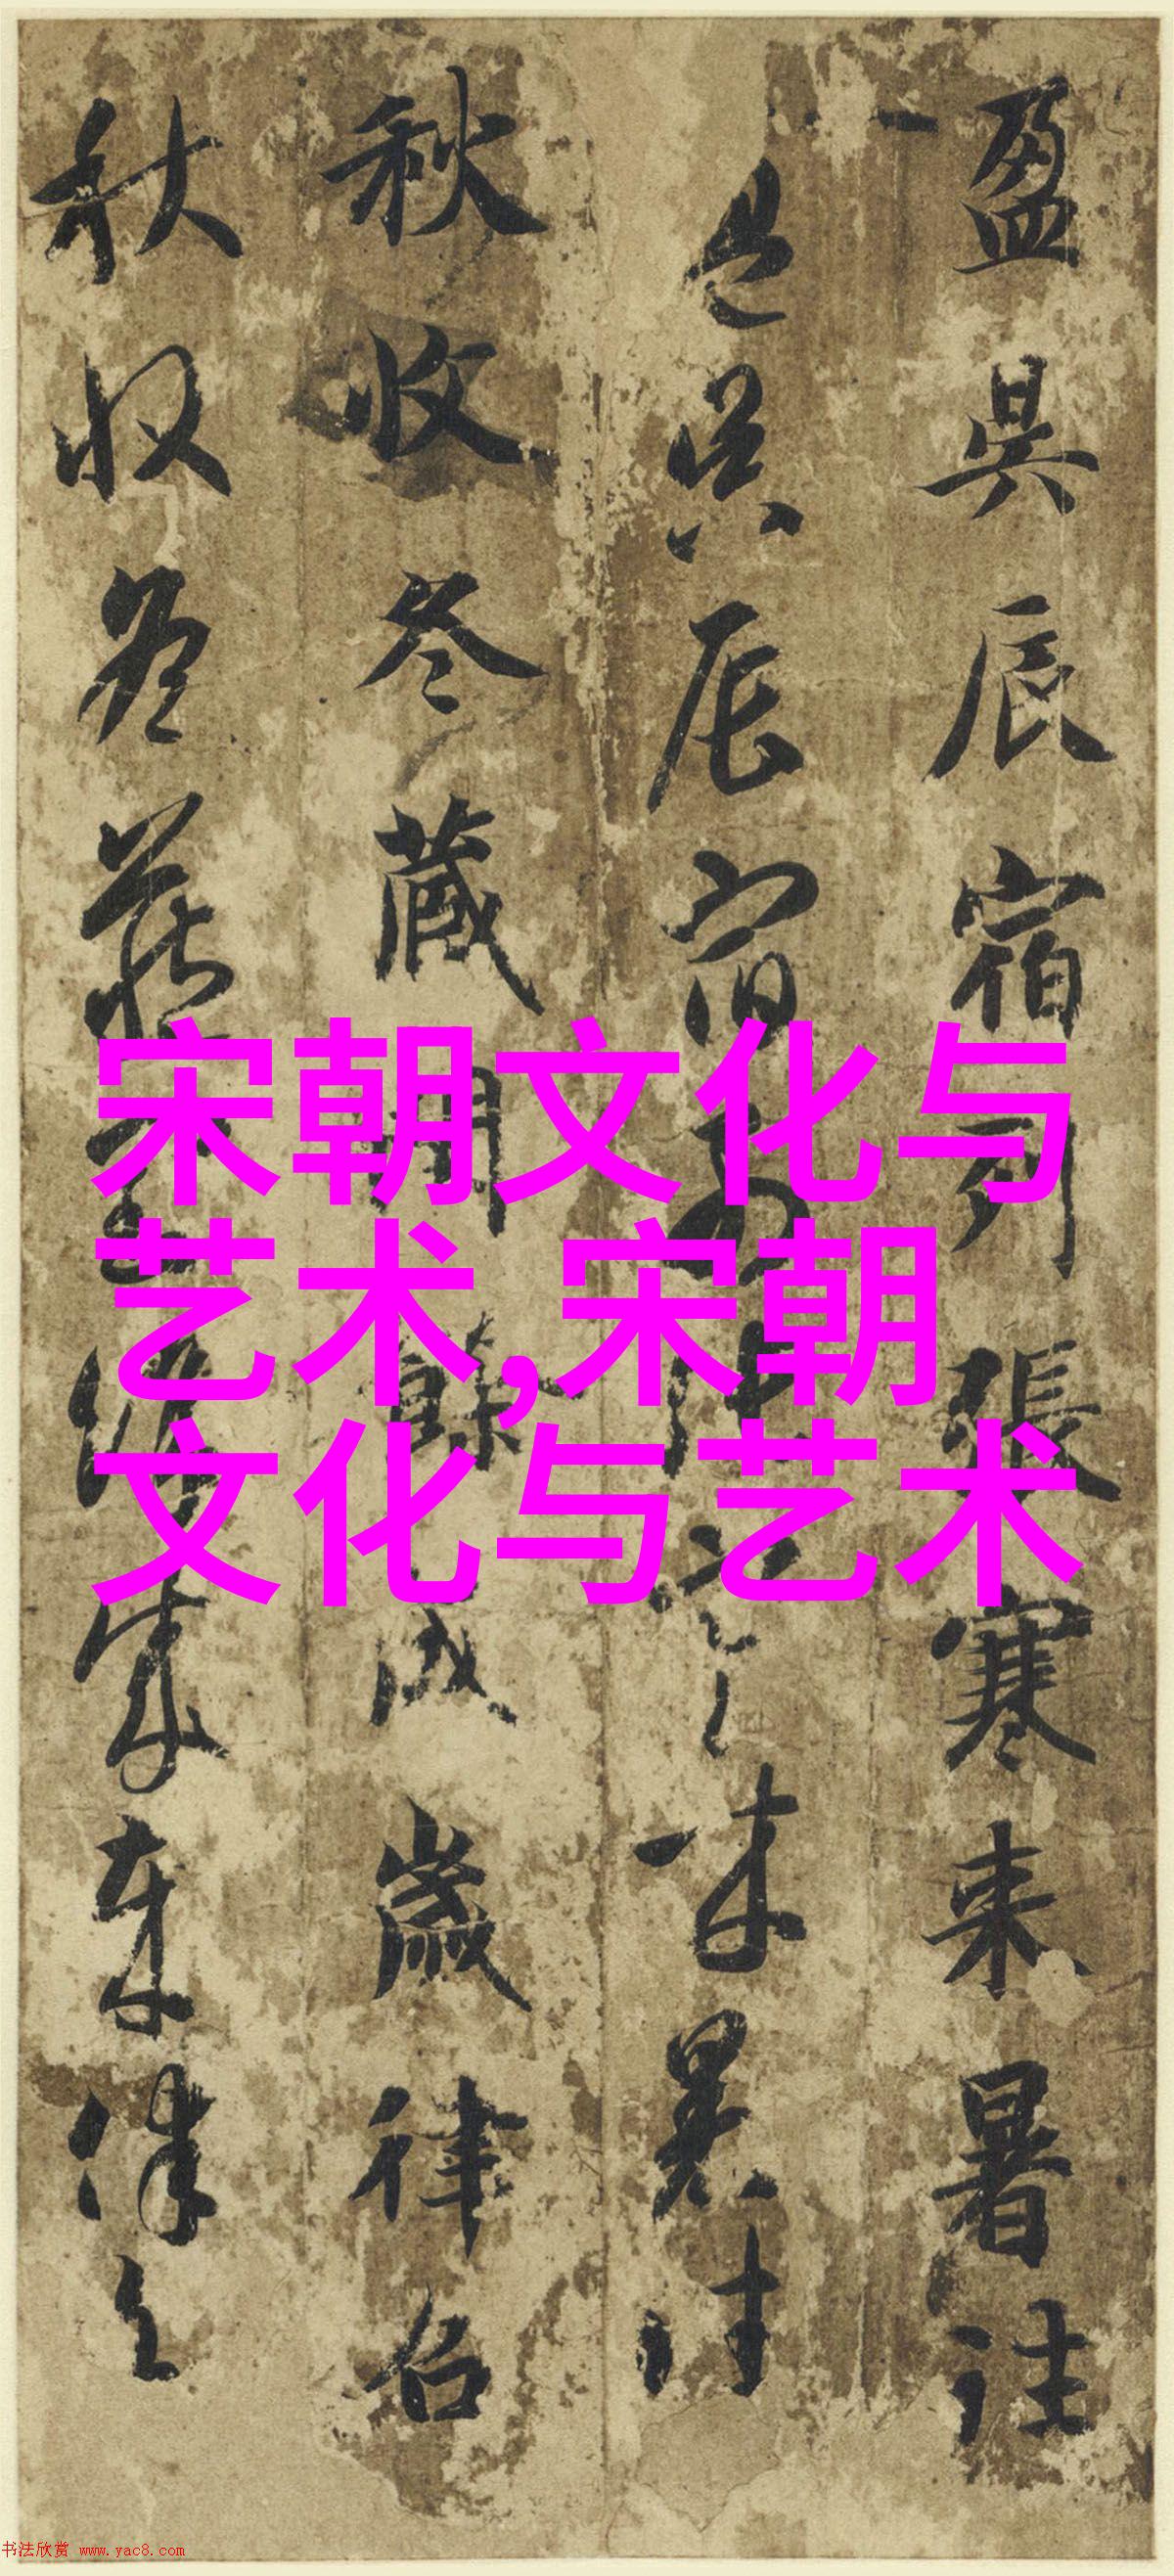 盈昃辰宿列張寒来暑往
盈昃辰宿来暑往
秋收冬蔵閏餘成歲律召
秋收冬藏成歲律召
宋朝文化与
艺术,宋朝
文化与艺术
书法欣赏 www.yac8.com